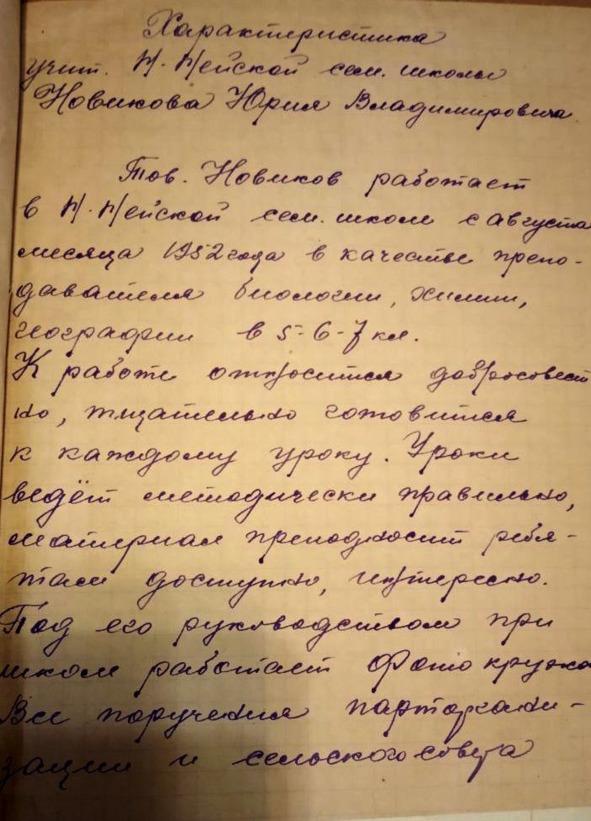 Характеристика
учит. Н-Нейской сем. школы
Новикова Юрия Владимировича.
Тов. Новиков работает
в Н-Нейской сем. школе с августа
месяца 1952 года в качестве препо-
давателя биологии, химии,
географии в 5-6-7 кл.
К работе относится добросовест
но, тщательно готовится
к каждому уроку. Уроки
ведёт методически правильно,
материал преподносит ребя-
там доступно, интересно.
Под его руководством при
школе работает фото кружок
Все поручения парторгани-
зации и сельского совета